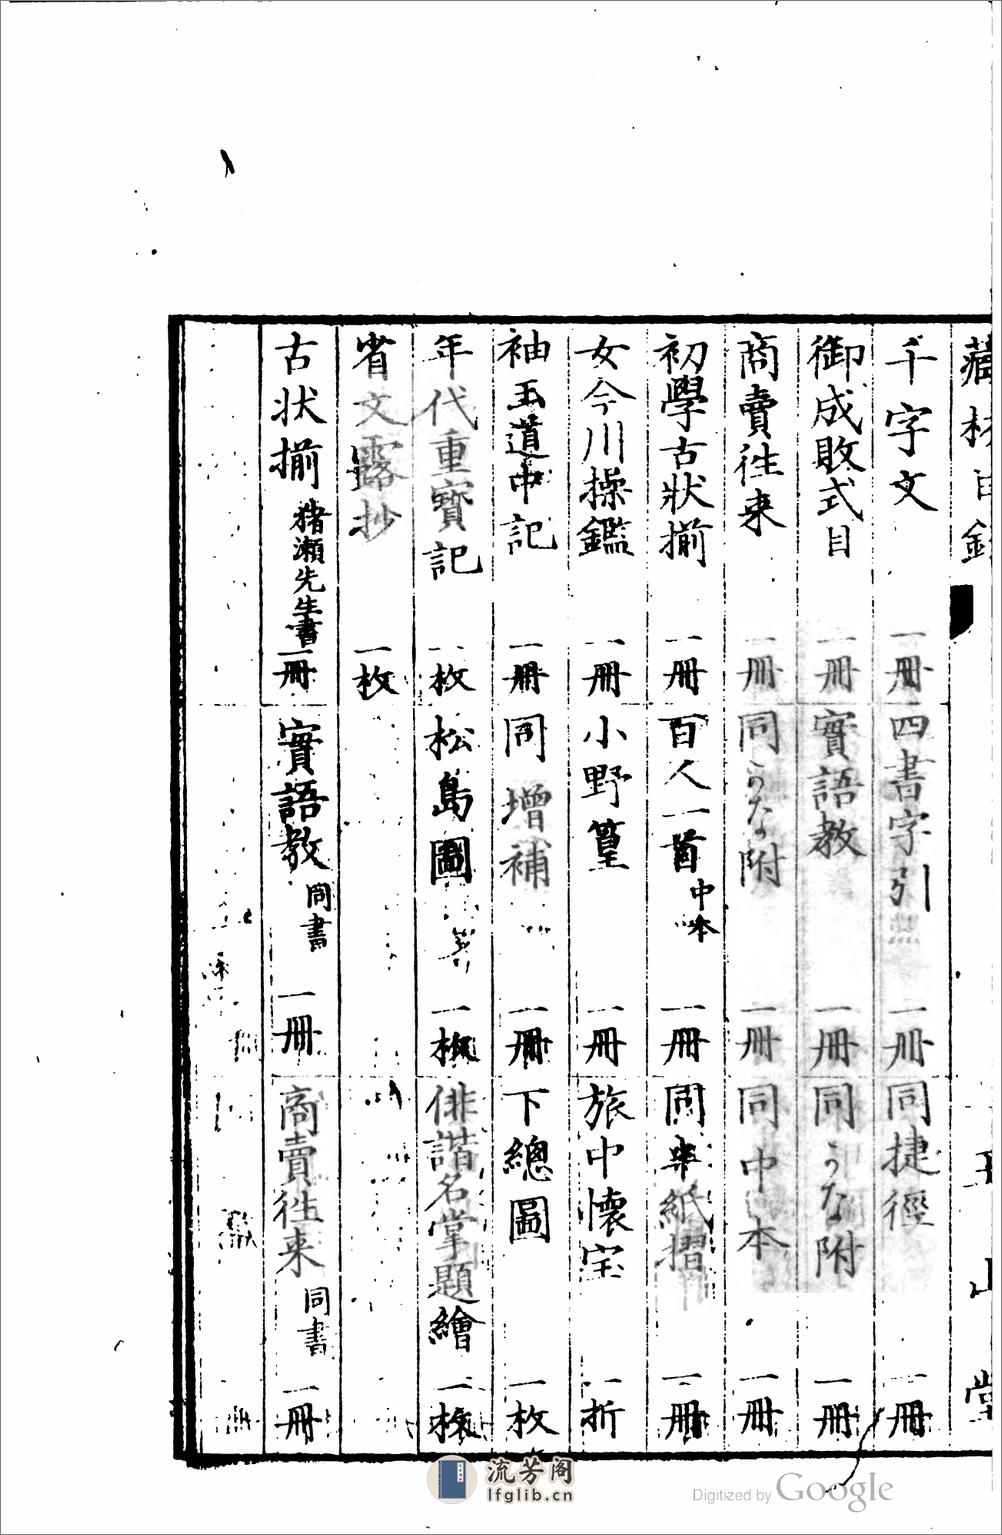 藏板目錄
玉山堂
千字文 一册 四書字引 一册 同捷徑 一册
御成敗式目 一册 實語教 一册 同かな附 一册
商賣往来 一册 同かな附 一册 同中本 一册
初學古状揃 一册 百人一首 中本 一册 同半紙摺 一册
女今川操鑑 一册 小野篁 一册 旅中懐宝 一折
袖玉道中記 一册 同増補 一册 下總圖 一枚
年代重寳記 一枚 松島圖 一枚 俳諧名掌題繪 一枚
省文露抄 一枚
古状揃 猪瀬先生書 一冊 實語教 同書 一冊 商賣往来 同書 一冊
流芳阁
lfglib.cn
Digitized by Google